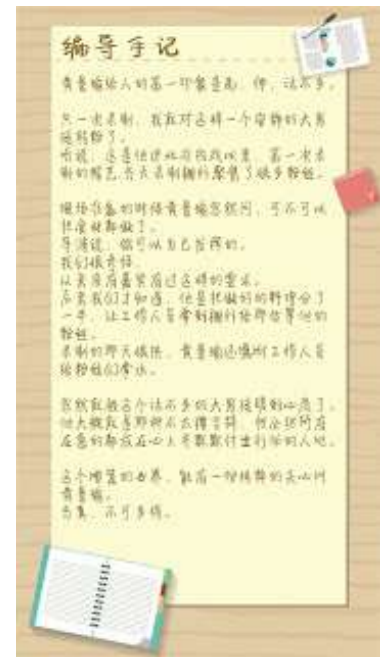 编导手记
黄景瑜给人的第一印象是高、帅、话不多。
只一次录制，我就对这样一个安静的大男
孩路粉了。
听说，这是他进组前的以来，第一次录
制的综艺，当天录制棚外聚集了很多粉丝。
现场准备的时候黄景瑜忽然问，可不可以
把食材都做了。
导演说，你可以自己发挥的。
我们很奇怪
以来没有嘉宾有过这样的要求。
后来我们才知道，他是把做好的料理分了
一半，让工作人员拿到棚外给那些等他的
粉丝。
录制的那天很热，黄景瑜还嘱咐工作人员
给粉丝们拿水。
忽然就被这个话不多的大男孩暖到心底了。
他大概就是那种不太擅言辞，但会把所有
在意的都放在心上并默默付出行动的人吧。
这个喧嚣的世界，能有一份纯粹的关心叫
黄景瑜。
当真，不可多得。